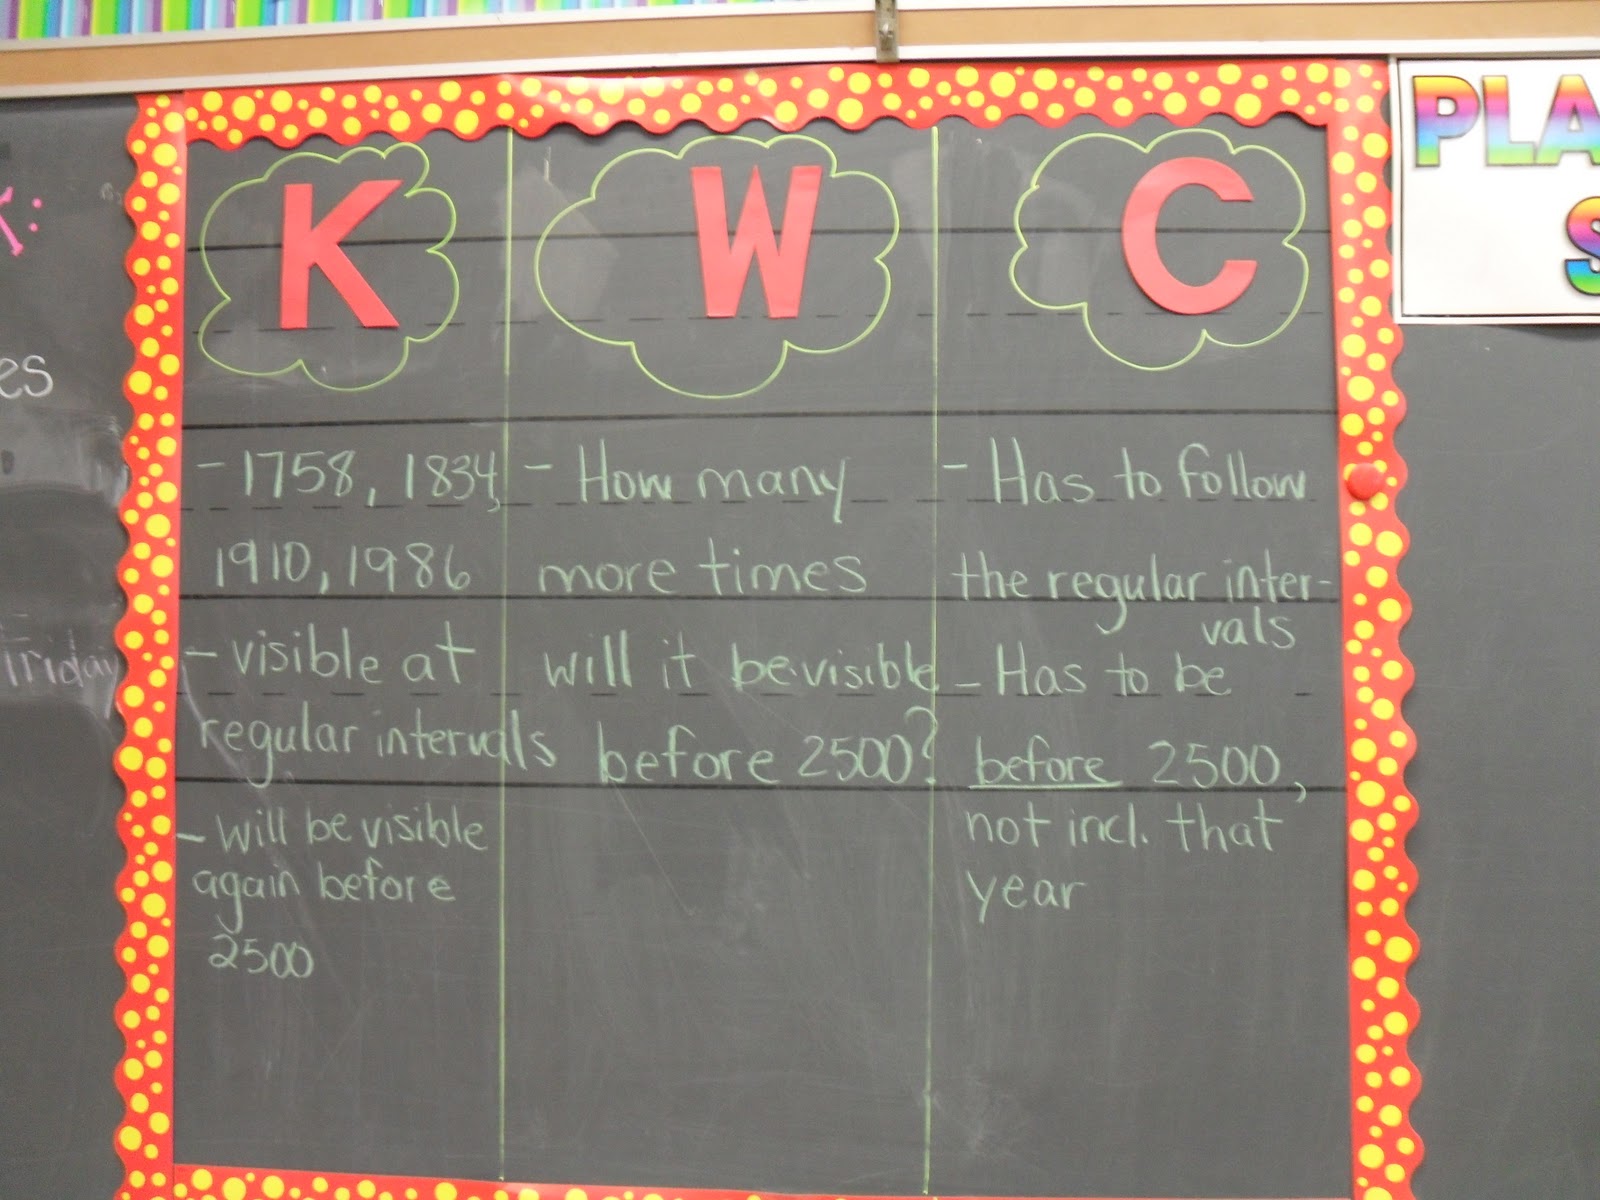 K
- 1758, 1834,
1910, 1986
- visible at
regular intervals
- will be visible
again before
2500
W
- How many
more times
will it be visible
before 2500?
C
- Has to follow
the regular inter-
vals
- Has to be
before 2500,
not incl. that
year
PLA
S
es
Friday